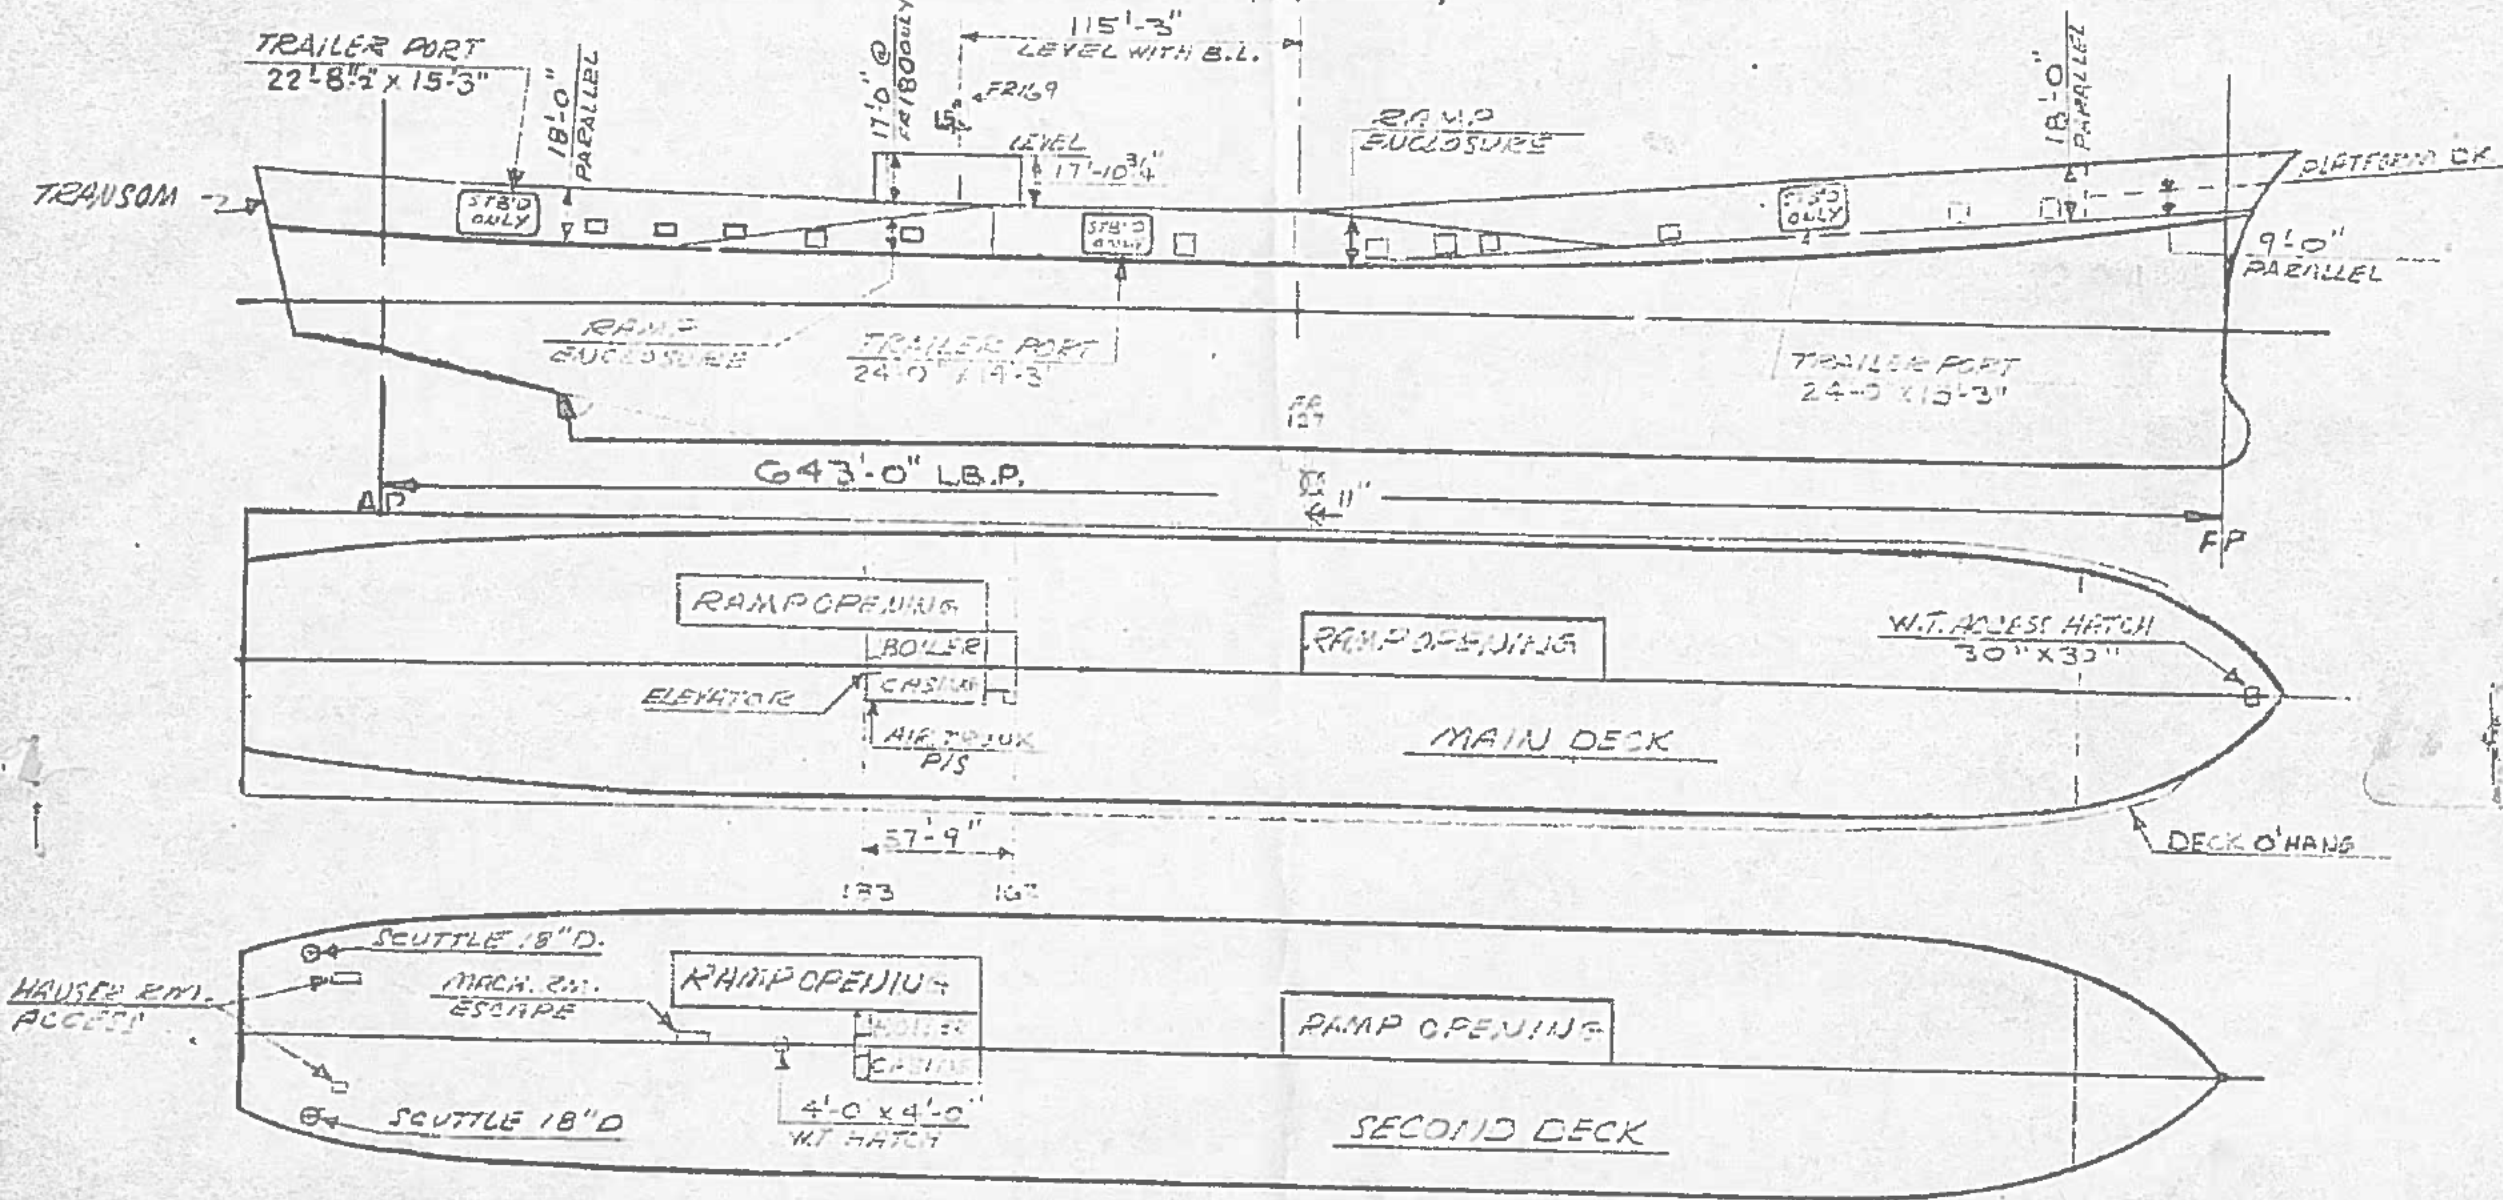 115'-3"
LEVEL WITH B.L.
TRAILER PORT
22'-8½" x 15'-3"
18'-0"
PARALLEL
17'-0" @
FR 180 ONLY
FR169
LEVEL
17'-10¾"
RAMP
ENCLOSURE
18'-0"
PARALLEL
PLATFORM DK.
TRANSOM
STB'D
ONLY
STB'D
ONLY
ONLY
9'-0"
PARALLEL
RAMP
ENCLOSURE
TRAILER PORT
TRAILER PORT
643'-0" L.B.P.
11"
AP
FP
RAMP OPENING
BOILER
CASING
ELEVATOR
AIR TRUNK
P/S
RAMP OPENING
W.T. ACCESS HATCH
30" X 30"
MAIN DECK
DECK O'HANG
57'-9"
SCUTTLE 18" D.
HAWSER RM.
ACCESS
MACH. RM.
ESCAPE
RAMP OPENING
BOILER
CASING
RAMP OPENING
SCUTTLE 18" D
4'-0" x 4'-0"
W.T. HATCH
SECOND DECK